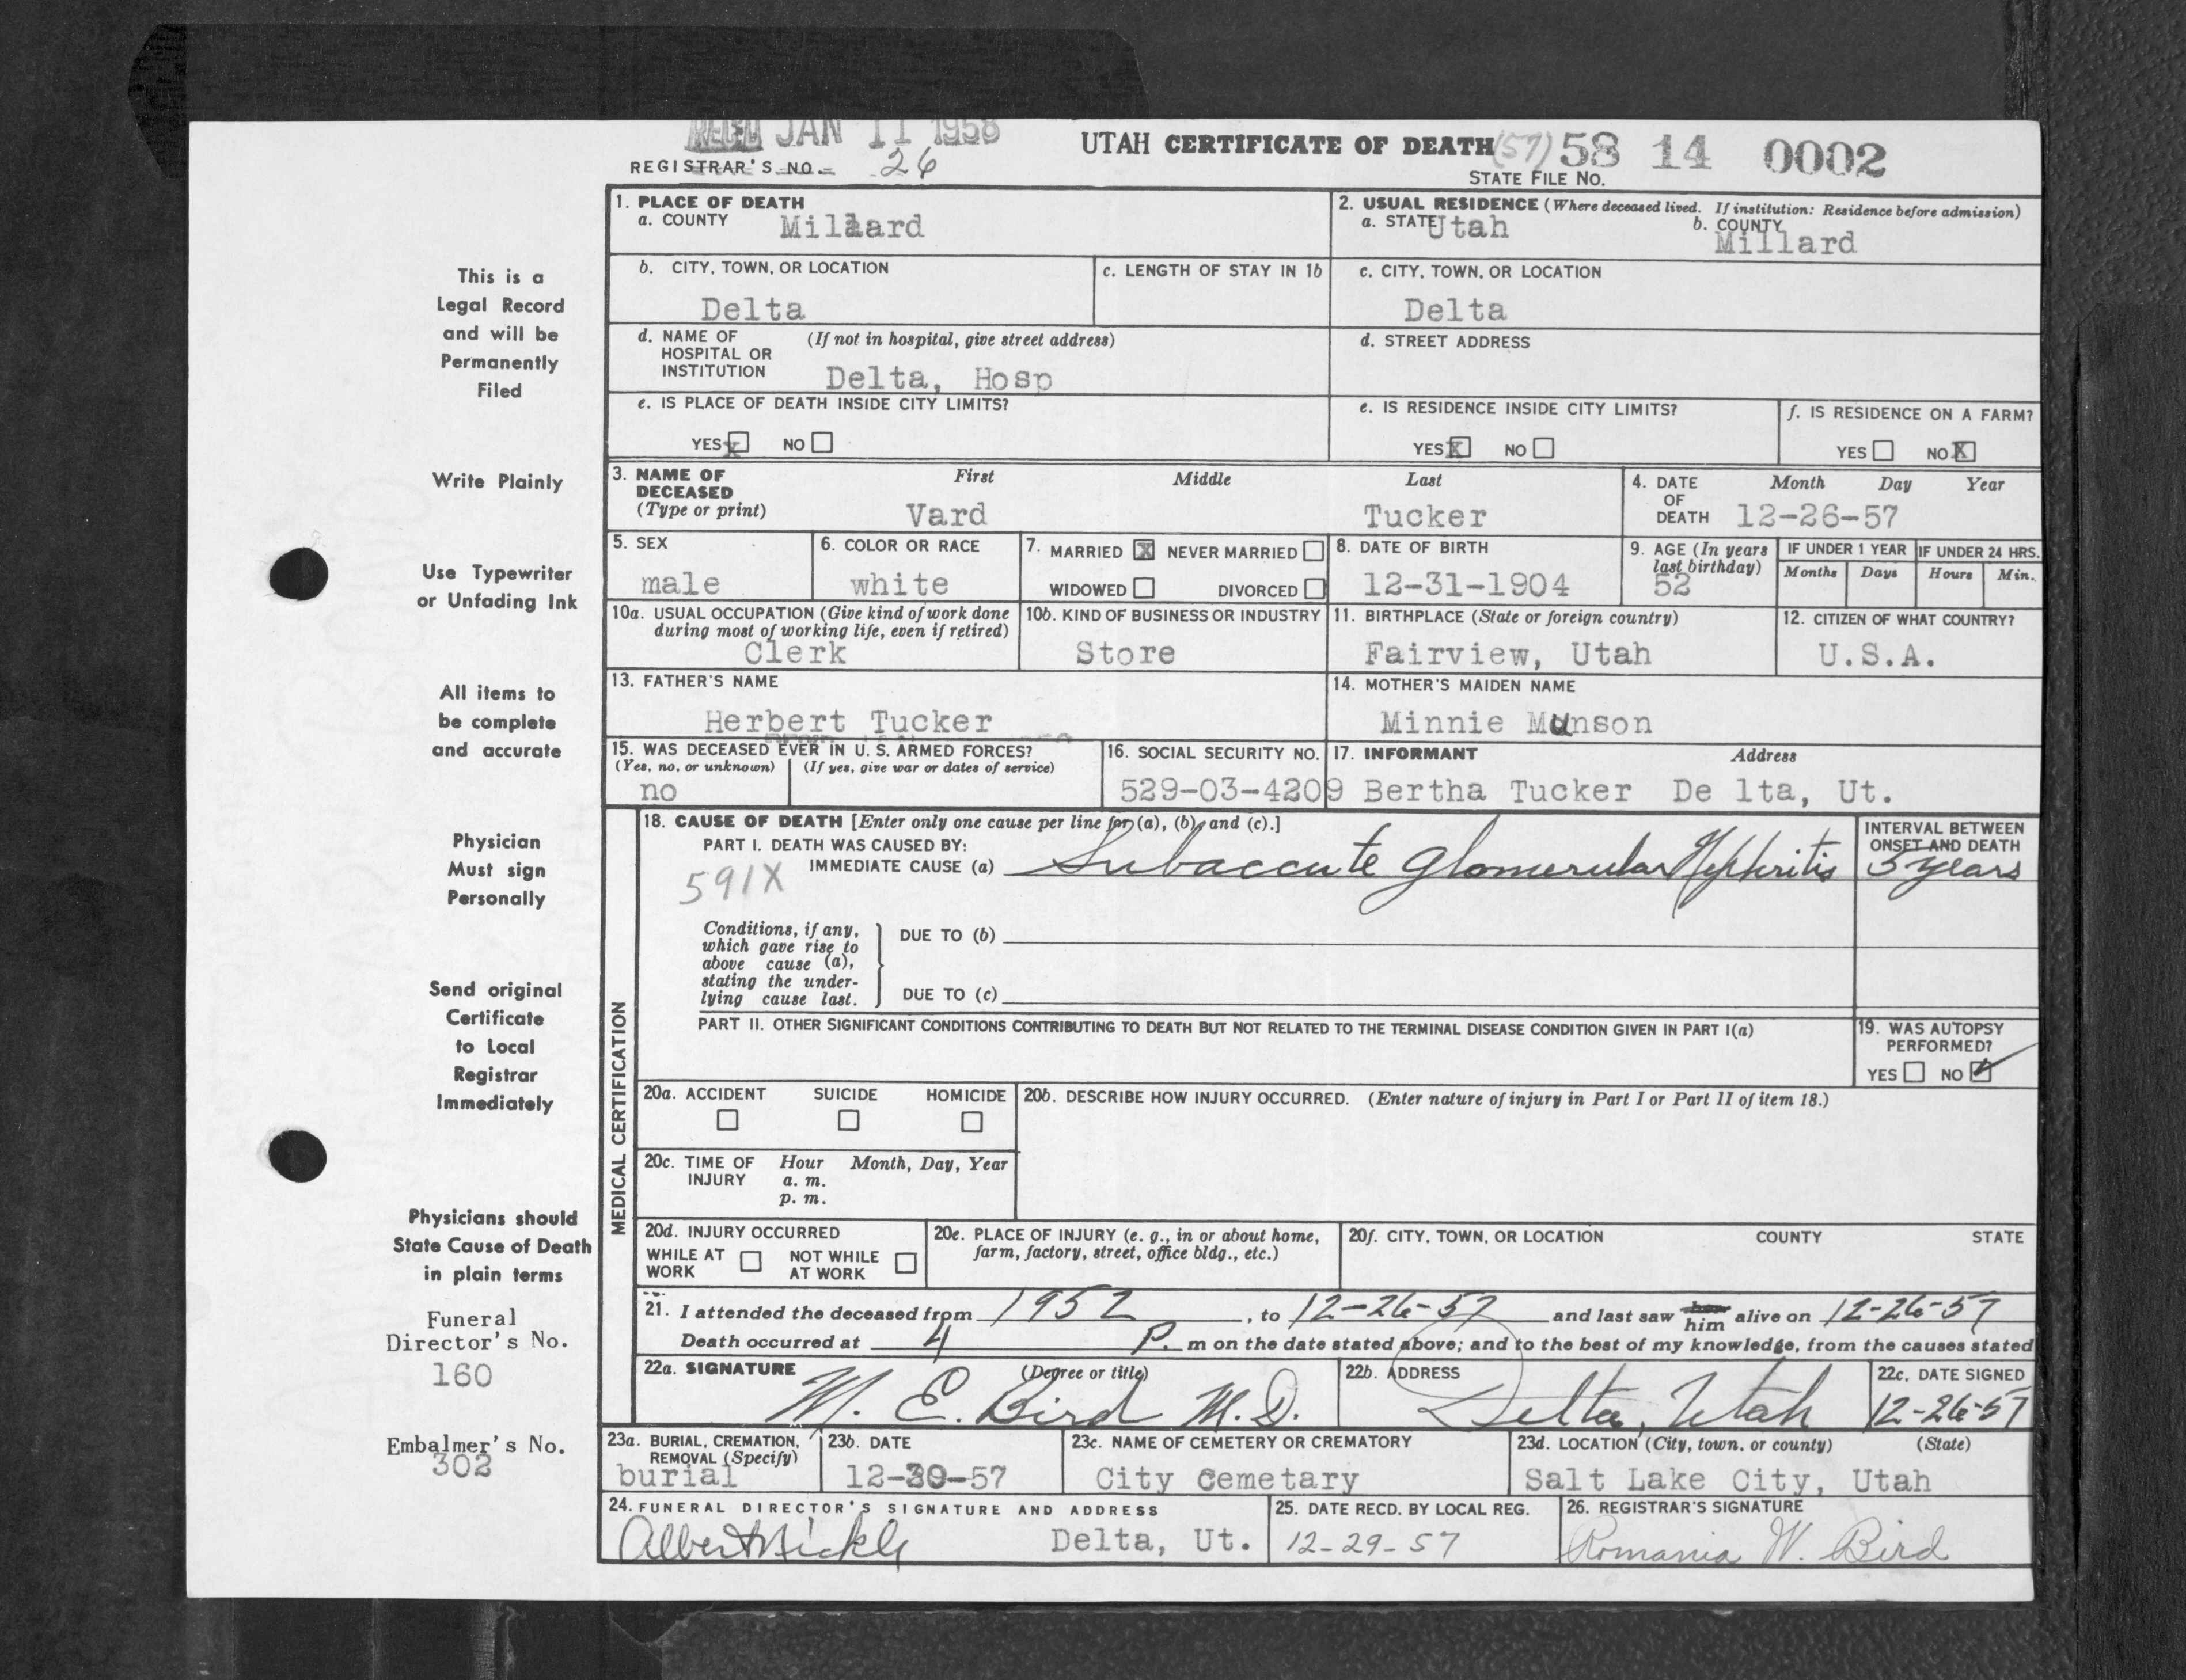 RECD JAN 11 1958
UTAH CERTIFICATE OF DEATH (57) 58 14 0002
REGISTRAR'S NO. 26
STATE FILE NO.
1. PLACE OF DEATH
a. COUNTY Millard
2. USUAL RESIDENCE (Where deceased lived. If institution: Residence before admission)
a. STATE Utah b. COUNTY Millard
This is a
Legal Record
and will be
Permanently
Filed
b. CITY, TOWN, OR LOCATION
Delta
c. LENGTH OF STAY IN 1b
c. CITY, TOWN, OR LOCATION
Delta
d. NAME OF HOSPITAL OR INSTITUTION (If not in hospital, give street address)
Delta, Hosp
d. STREET ADDRESS
e. IS PLACE OF DEATH INSIDE CITY LIMITS?
YES X NO
e. IS RESIDENCE INSIDE CITY LIMITS?
YES X NO
f. IS RESIDENCE ON A FARM?
YES NO X
Write Plainly
3. NAME OF DECEASED (Type or print)
First Middle Last
Vard Tucker
4. DATE OF DEATH Month Day Year
12-26-57
Use Typewriter
or Unfading Ink
5. SEX
male
6. COLOR OR RACE
white
7. MARRIED X NEVER MARRIED
WIDOWED DIVORCED
8. DATE OF BIRTH
12-31-1904
9. AGE (In years last birthday)
52
IF UNDER 1 YEAR
Months Days
IF UNDER 24 HRS.
Hours Min.
10a. USUAL OCCUPATION (Give kind of work done
during most of working life, even if retired)
Clerk
10b. KIND OF BUSINESS OR INDUSTRY
Store
11. BIRTHPLACE (State or foreign country)
Fairview, Utah
12. CITIZEN OF WHAT COUNTRY?
U.S.A.
All items to
be complete
and accurate
13. FATHER'S NAME
Herbert Tucker
14. MOTHER'S MAIDEN NAME
Minnie Munson
15. WAS DECEASED EVER IN U. S. ARMED FORCES?
(Yes, no, or unknown) (If yes, give war or dates of service)
no
16. SOCIAL SECURITY NO.
529-03-4209
17. INFORMANT Address
Bertha Tucker De lta, Ut.
Physician
Must sign
Personally
MEDICAL CERTIFICATION
18. CAUSE OF DEATH [Enter only one cause per line for (a), (b), and (c).]
PART I. DEATH WAS CAUSED BY:
IMMEDIATE CAUSE (a) Subaccute Glomerular Nephritis
591X
INTERVAL BETWEEN
ONSET AND DEATH
5 years
Conditions, if any,
which gave rise to
above cause (a),
stating the under-
lying cause last.
DUE TO (b)
DUE TO (c)
Send original
Certificate
to Local
Registrar
Immediately
PART II. OTHER SIGNIFICANT CONDITIONS CONTRIBUTING TO DEATH BUT NOT RELATED TO THE TERMINAL DISEASE CONDITION GIVEN IN PART I(a)
19. WAS AUTOPSY
PERFORMED?
YES NO ✓
20a. ACCIDENT SUICIDE HOMICIDE
20b. DESCRIBE HOW INJURY OCCURRED. (Enter nature of injury in Part I or Part II of item 18.)
20c. TIME OF INJURY Hour Month, Day, Year
a. m.
p. m.
Physicians should
State Cause of Death
in plain terms
20d. INJURY OCCURRED
WHILE AT WORK NOT WHILE AT WORK
20e. PLACE OF INJURY (e. g., in or about home,
farm, factory, street, office bldg., etc.)
20f. CITY, TOWN, OR LOCATION COUNTY STATE
21. I attended the deceased from 1952, to 12-26-57 and last saw her him alive on 12-26-57
Death occurred at 4 P. m on the date stated above; and to the best of my knowledge, from the causes stated
Funeral
Director's No.
160
22a. SIGNATURE (Degree or title)
M. E. Bird M.D.
22b. ADDRESS
Delta, Utah
22c. DATE SIGNED
12-26-57
Embalmer's No.
302
23a. BURIAL, CREMATION,
REMOVAL (Specify)
burial
23b. DATE
12-30-57
23c. NAME OF CEMETERY OR CREMATORY
City Cemetary
23d. LOCATION (City, town, or county) (State)
Salt Lake City, Utah
24. FUNERAL DIRECTOR'S SIGNATURE AND ADDRESS
Albert Nickle Delta, Ut.
25. DATE RECD. BY LOCAL REG.
12-29-57
26. REGISTRAR'S SIGNATURE
Romania W. Bird